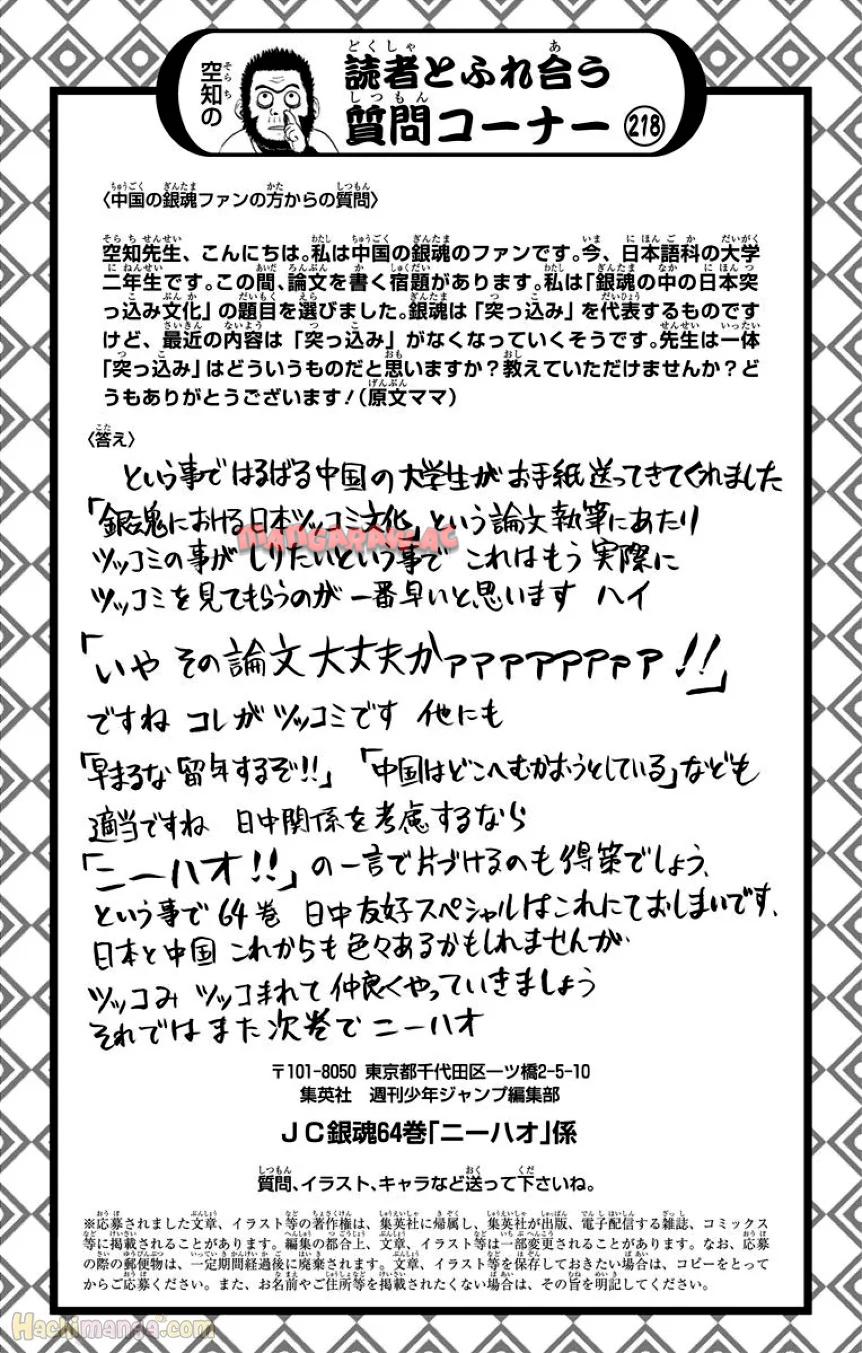 空知の
読者とふれ合う
質問コーナー 218
〈中国の銀魂ファンの方からの質問〉
空知先生、こんにちは。私は中国の銀魂のファンです。今、日本語科の大学
二年生です。この間、論文を書く宿題があります。私は「銀魂の中の日本突
っ込み文化」の題目を選びました。銀魂は「突っ込み」を代表するものです
けど、最近の内容は「突っ込み」がなくなっていくそうです。先生は一体
「突っ込み」はどういうものだと思いますか?教えていただけませんか?ど
うもありがとうございます!(原文ママ)
〈答え〉
という事ではるばる中国の大学生がお手紙送ってきてくれました
「銀魂における日本ツッコミ文化」という論文執筆にあたり
MANGARAW.AC
ツッコミの事がしりたいという事で これはもう実際に
ツッコミを見てもらうのが一番早いと思います ハイ
「いや その論文大丈夫かァァァァァァァァ!!」
ですね コレがツッコミです 他にも
「早まるな 留年するぞ!!」「中国はどこへむかおうとしている」なども
適当ですね 日中関係を考慮するなら
「ニーハオ!!」の一言で片づけるのも得策でしょう、
という事で64巻 日中友好スペシャルはこれにておしまいです、
日本と中国 これからも色々あるかもしれませんが
ツッコみ ツッコまれて仲良くやっていきましょう
それではまた次巻で ニーハオ
〒101-8050 東京都千代田区一ツ橋2-5-10
集英社 週刊少年ジャンプ編集部
JC銀魂64巻「ニーハオ」係
質問、イラスト、キャラなど送って下さいね。
※応募されました文章、イラスト等の著作権は、集英社に帰属し、集英社が出版、電子配信する雑誌、コミックス
等に掲載されることがあります。編集の都合上、文章、イラスト等は一部変更されることがあります。なお、応募
の際の郵便物は、一定期間経過後に廃棄されます。文章、イラスト等を保存しておきたい場合は、コピーをとって
からご応募ください。また、お名前やご住所等を掲載されたくない場合は、その旨を明記してください。
Hachimanga.com